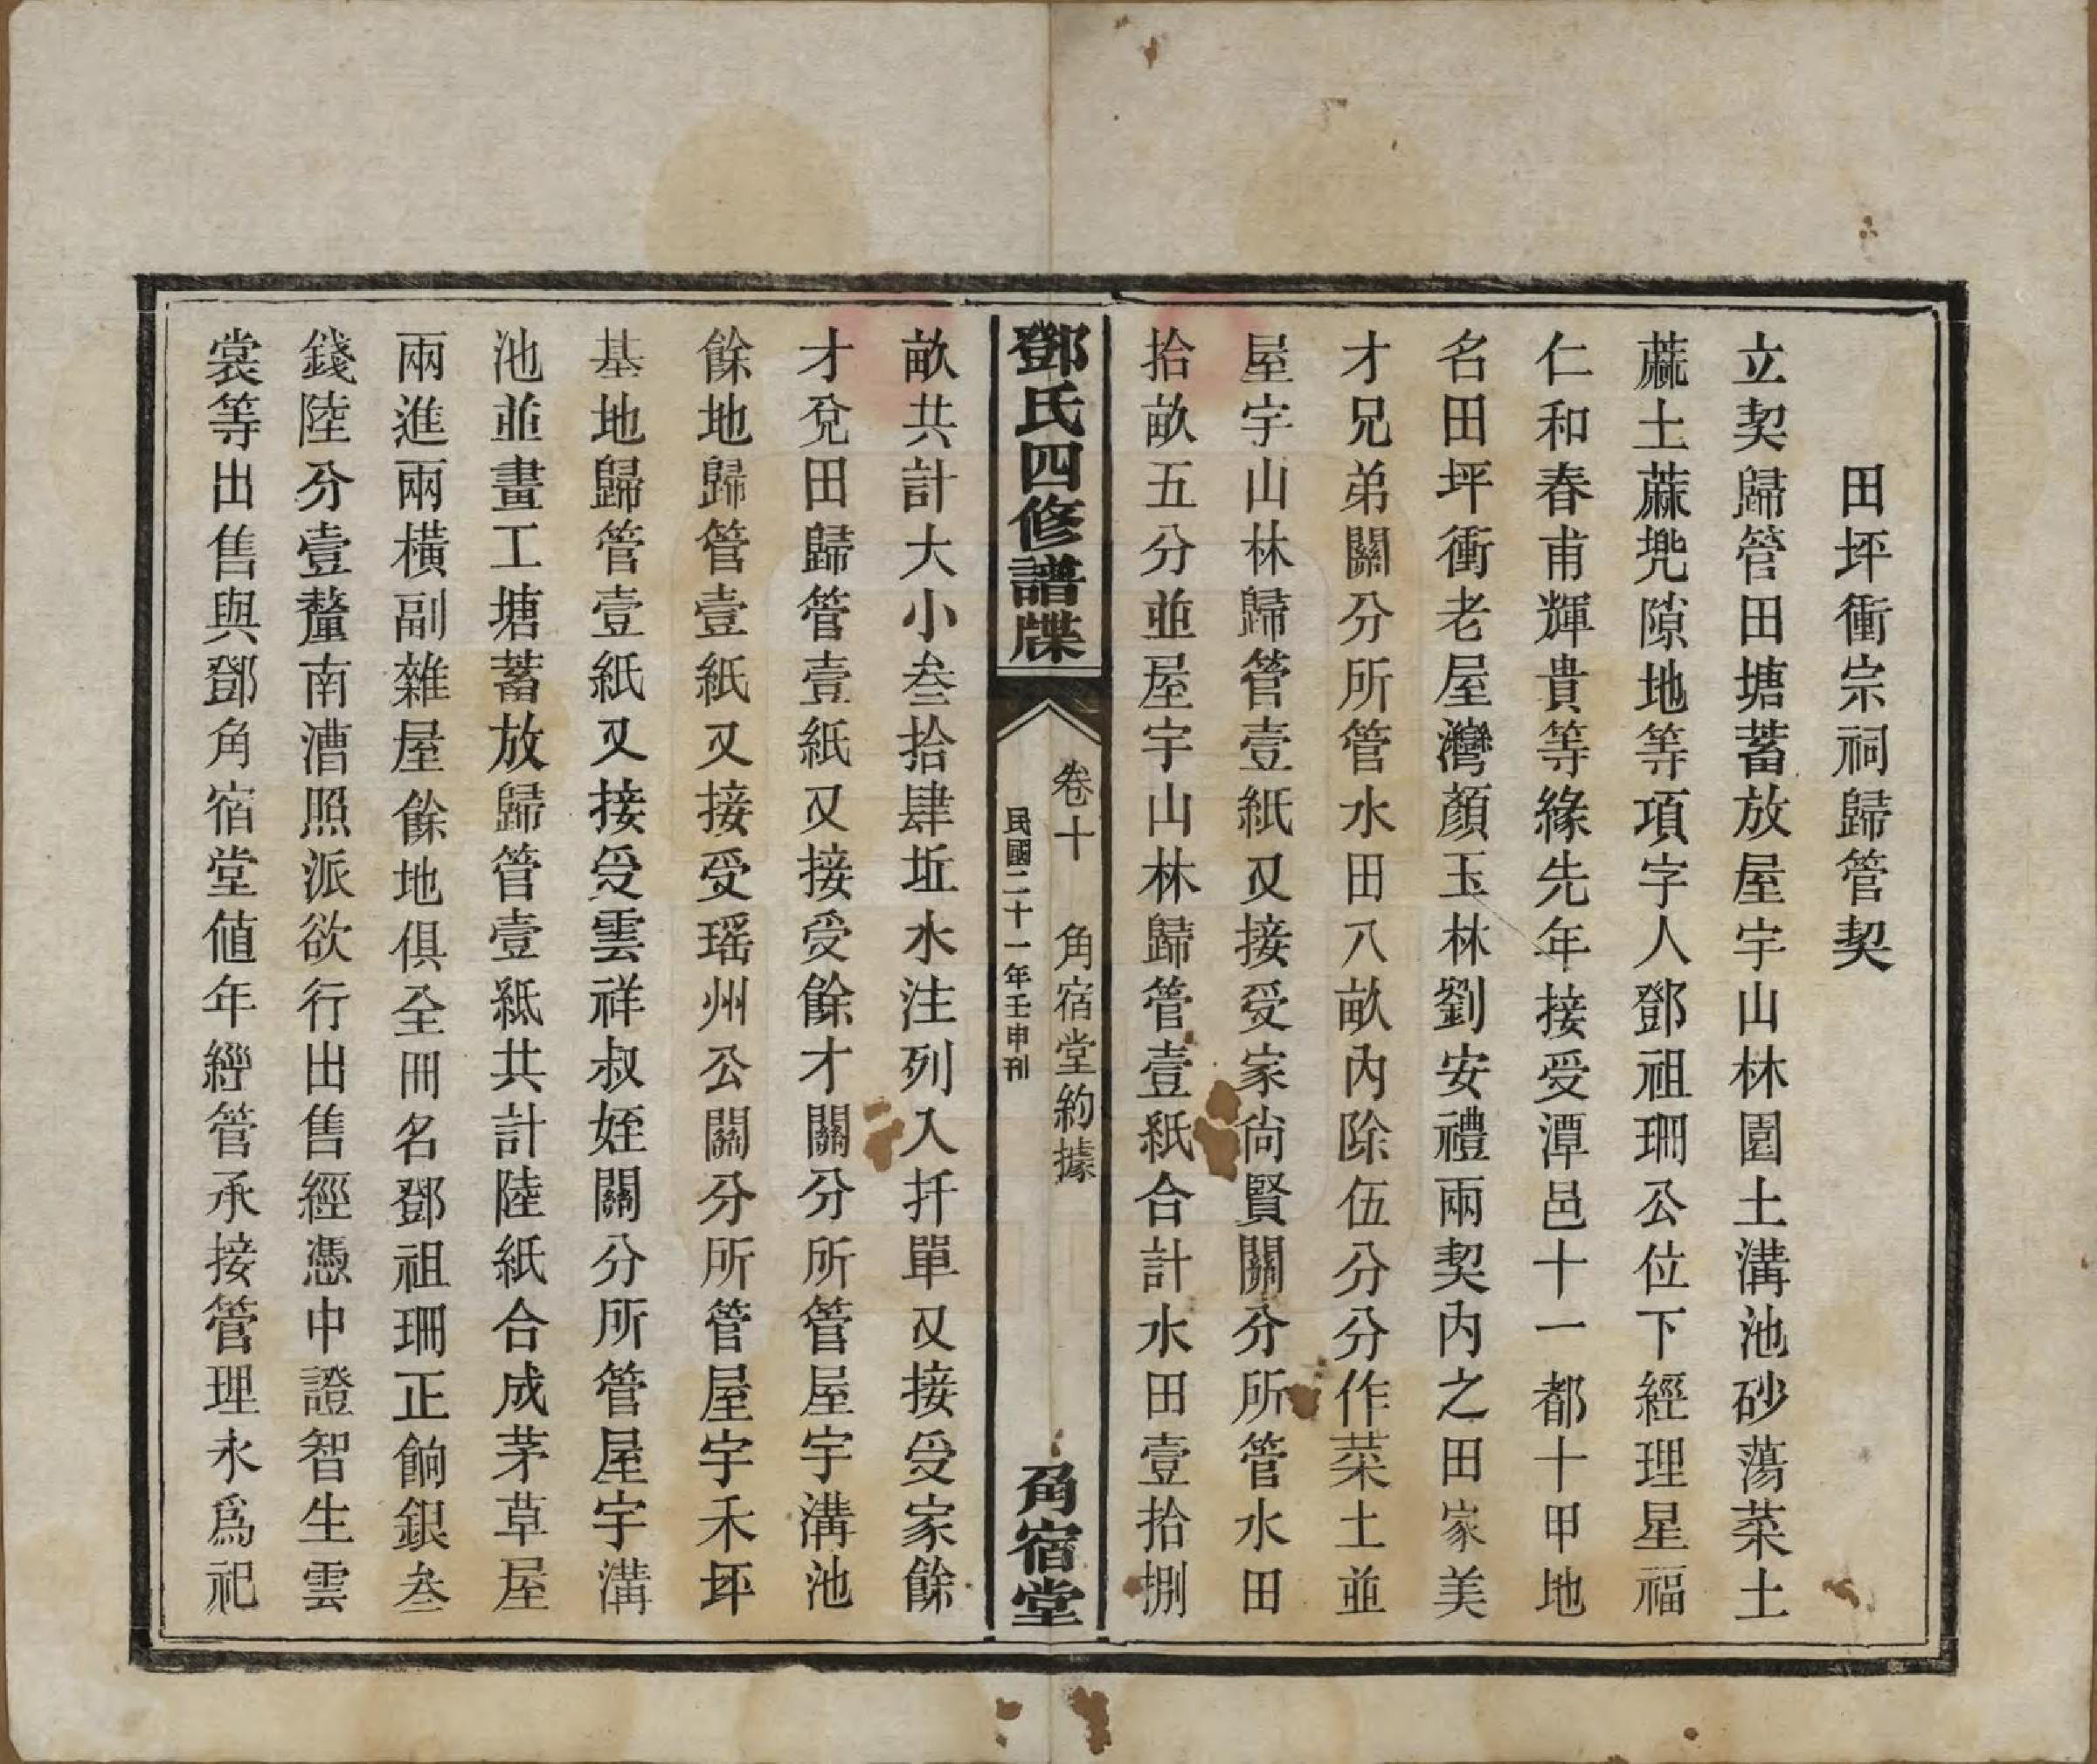 田坪衝宗祠歸管契
立契歸管田塘蓄放屋宇山林園土溝池砂蕩菜土
蔴土蔴兠隙地等項字人鄧祖珊公位下經理星福
仁和春甫輝貴等緣先年接受潭邑十一都十甲地
名田坪衝老屋灣顏玉林劉安禮兩契內之田家美
才兄弟關分所管水田八畝內除伍分分作菜土並
屋宇山林歸管壹紙又接受家尙賢關分所管水田
拾畝五分並屋宇山林歸管壹紙合計水田壹拾捌
鄧氏四修譜牒
卷十 角宿堂約據
民國二十一年壬申刊
角宿堂
畝共計大小叁拾肆坵水注列入扦單又接受家餘
才兌田歸管壹紙又接受餘才關分所管屋宇溝池
餘地歸管壹紙又接受瑤州公關分所管屋宇禾坪
基地歸管壹紙又接受雲祥叔姪關分所管屋宇溝
池並畫工塘蓄放歸管壹紙共計陸紙合成茅草屋
兩進兩橫副雜屋餘地俱全冊名鄧祖珊正餉銀叁
錢陸分壹釐南漕照派欲行出售經憑中證智生雲
裳等出售與鄧角宿堂値年經管承接管理永爲祀